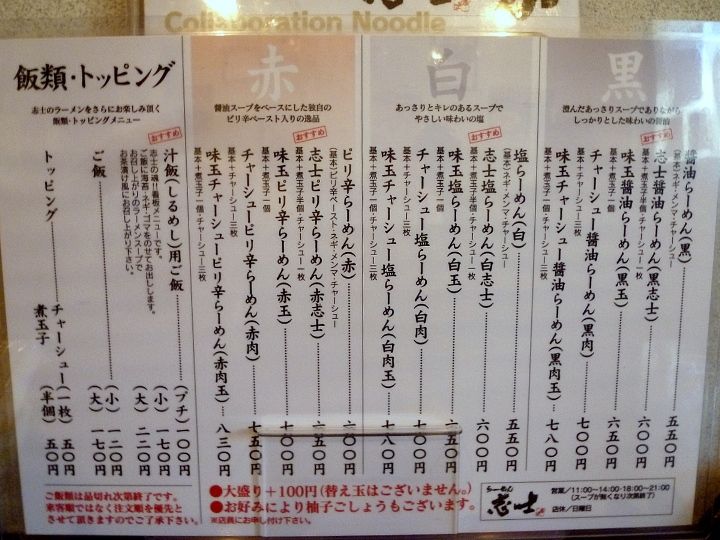 Collaboration Noodle
黒
澄んだあっさりスープでありながら
しっかりとした味わいの醤油
醤油らーめん(黒) 五五〇円
(基本)ネギ・メンマ・チャーシュー
おすすめ
志士醤油らーめん(黒志士) 六〇〇円
基本+煮玉子半個・チャーシュー一枚
味玉醤油らーめん(黒玉) 六五〇円
基本+煮玉子一個
チャーシュー醤油らーめん(黒肉) 七〇〇円
基本+チャーシュー三枚
味玉チャーシュー醤油らーめん(黒肉玉) 七八〇円
基本+煮玉子一個・チャーシュー三枚
白
あっさりとキレのあるスープで
やさしい味わいの塩
塩らーめん(白) 五五〇円
(基本)ネギ・メンマ・チャーシュー
おすすめ
志士塩らーめん(白志士) 六〇〇円
基本+煮玉子半個・チャーシュー一枚
味玉塩らーめん(白玉) 六五〇円
基本+煮玉子一個
チャーシュー塩らーめん(白肉) 七〇〇円
基本+チャーシュー三枚
味玉チャーシュー塩らーめん(白肉玉) 七八〇円
基本+煮玉子一個・チャーシュー三枚
赤
醤油スープをベースにした独自の
ピリ辛ペースト入りの逸品
ピリ辛らーめん(赤) 六〇〇円
(基本)ピリ辛ペースト・ネギ・メンマ・チャーシュー
おすすめ
志士ピリ辛らーめん(赤志士) 六五〇円
基本+煮玉子半個・チャーシュー一枚
味玉ピリ辛らーめん(赤玉) 七〇〇円
基本+煮玉子一個
チャーシューピリ辛らーめん(赤肉) 七五〇円
基本+チャーシュー三枚
味玉チャーシューピリ辛らーめん(赤肉玉) 八三〇円
基本+煮玉子一個・チャーシュー三枚
飯類・トッピング
志士のラーメンをさらにお楽しみ頂く
飯類・トッピングメニュー
おすすめ
汁飯(しるめし)用ご飯 (プチ) 一〇〇円
(小) 一七〇円
(大) 二二〇円
志士の魂!!看板メニューです。
ご飯に海苔・ネギ・ゴマをのせてお出しします。
お召し上がりのラーメンスープで
お茶漬け風にお召し上がり下さい。
ご飯 (小) 一二〇円
(大) 一七〇円
トッピング チャーシュー(一枚) 五〇円
煮玉子 (半個) 五〇円
ご飯類は品切れ次第終了です。
来客順ではなく注文順を優先と
させて頂きますのでご了承下さい。
●大盛り+100円(替え玉はございません。)
●お好みにより柚子ごしょうもございます。
※店員にお申し付け下さい。
らーめん
志士
営業/11:00~14:00・18:00~21:00
(スープが無くなり次第終了)
店休/日曜日